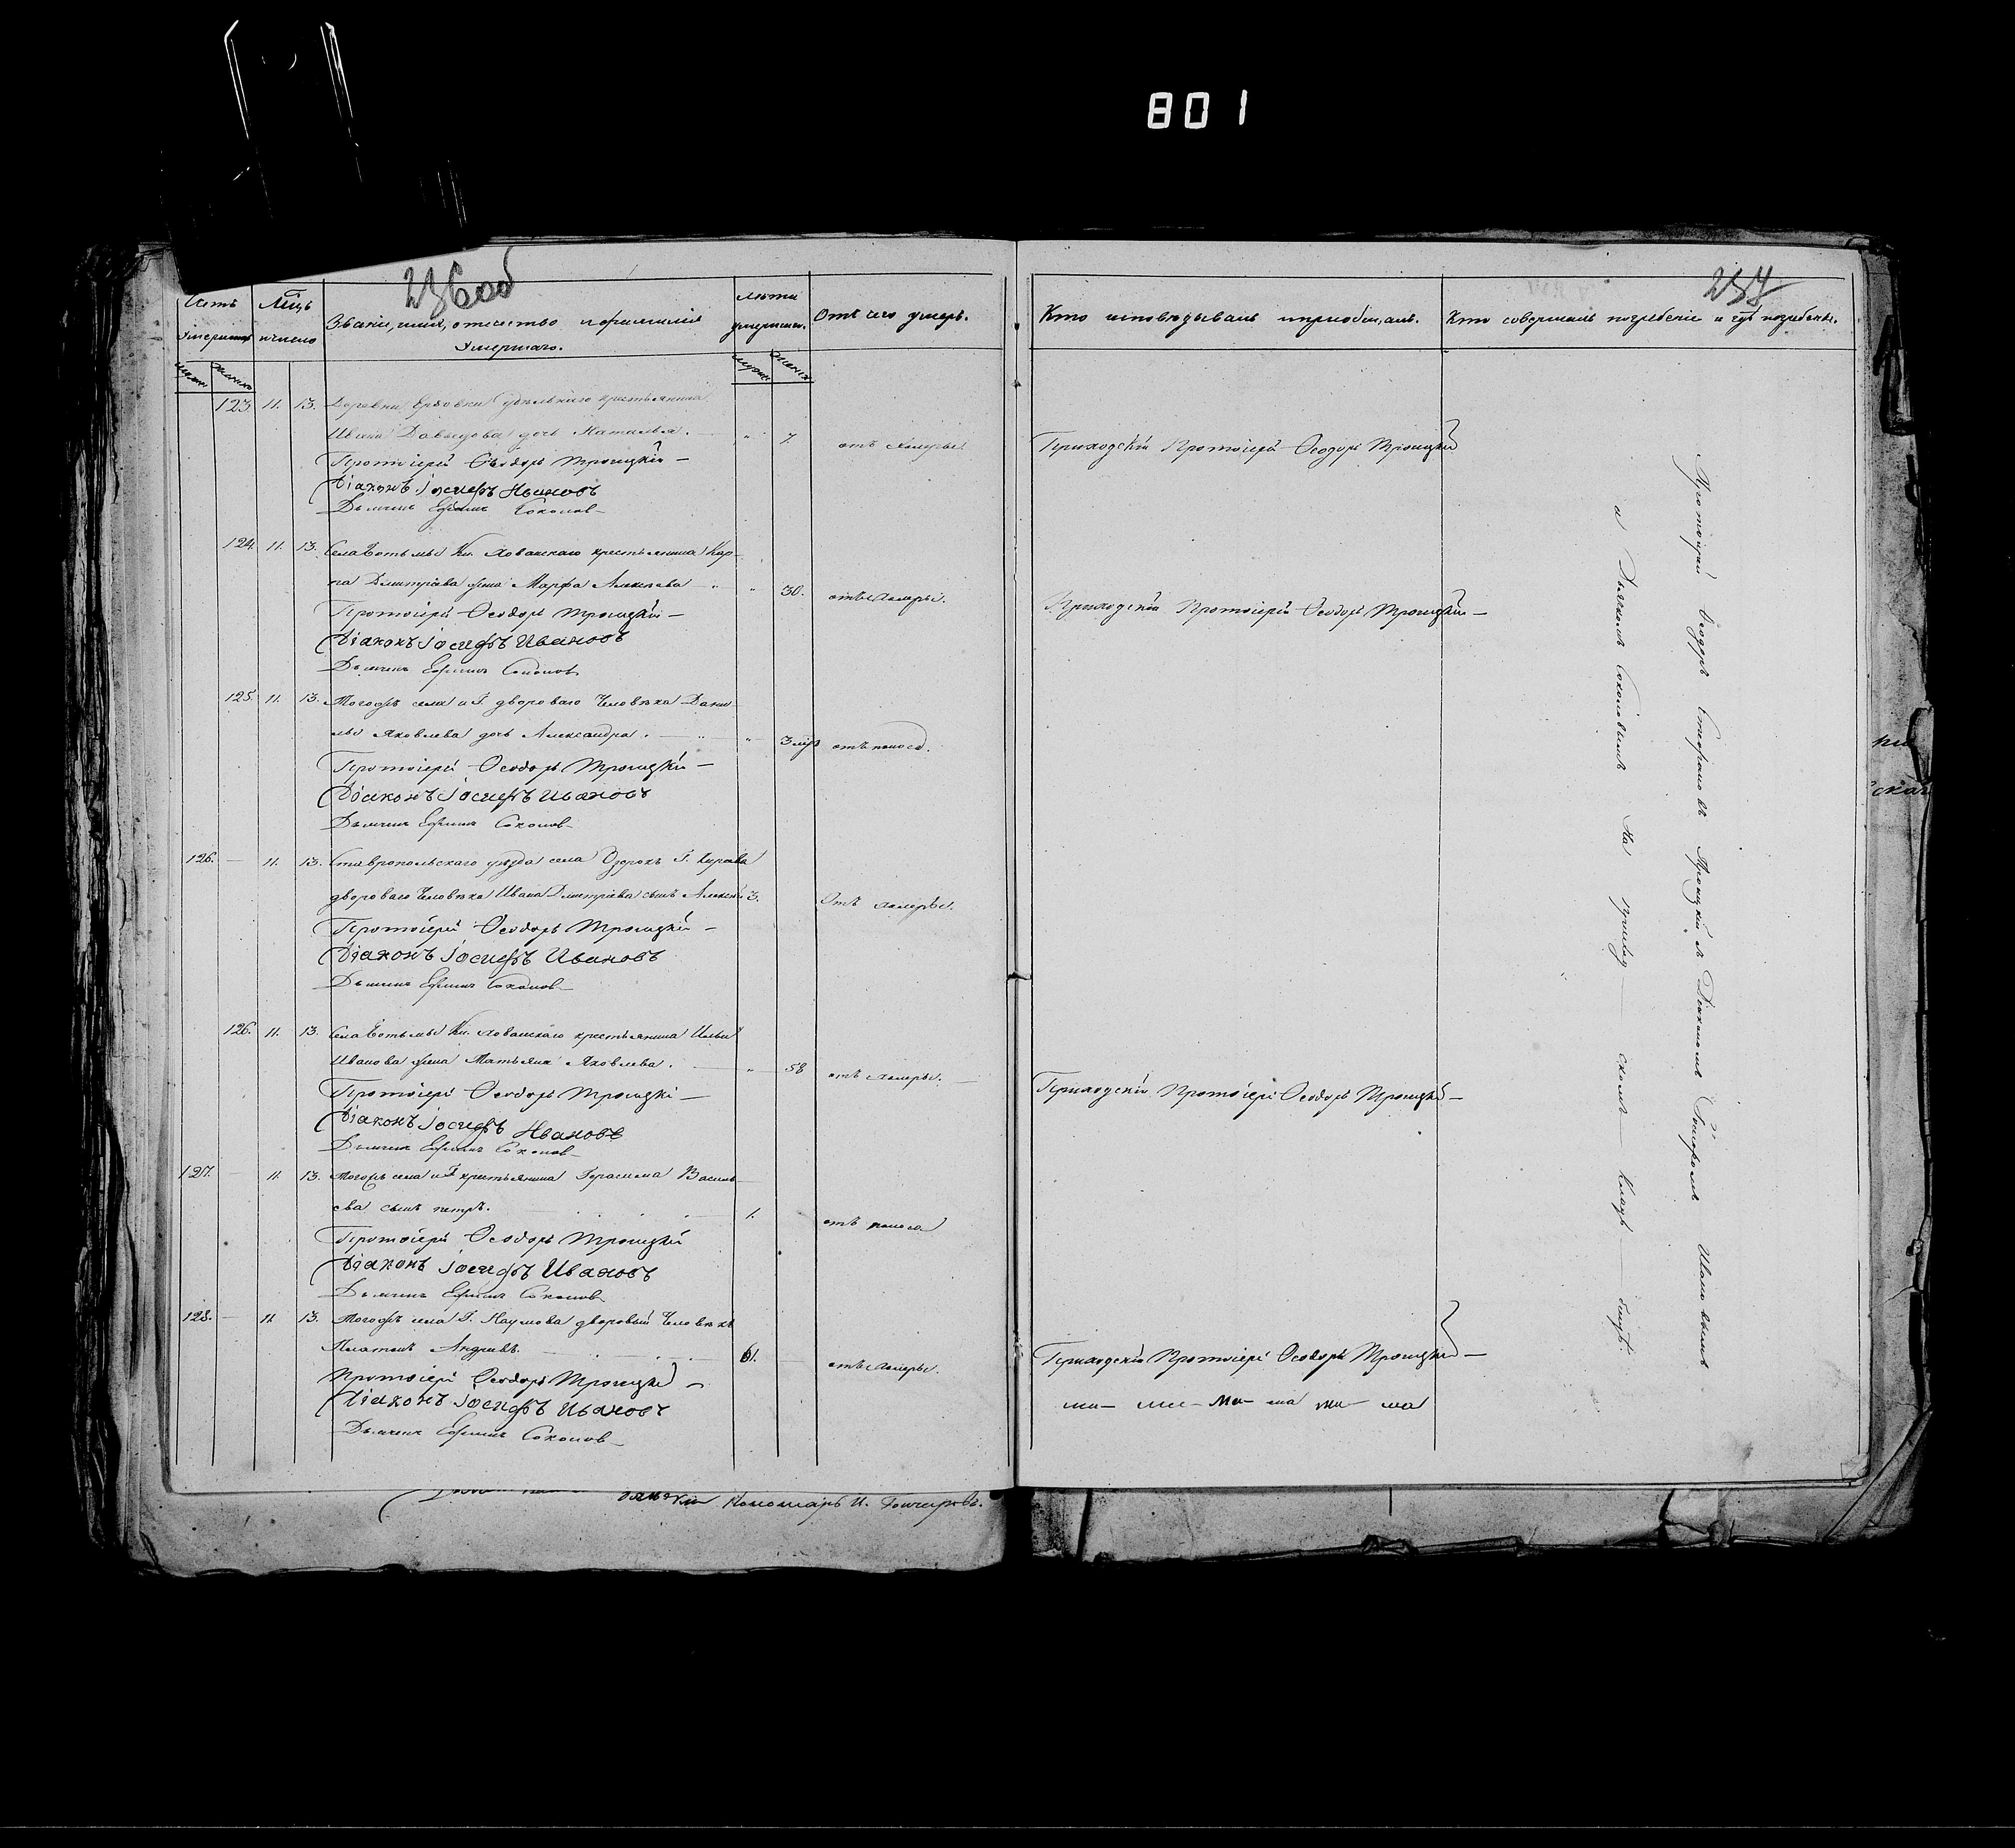 801
236 об
237
Счетъ умершихъ
Мѣсяцъ и число
Званіе, имя, отчество и фамилія умершаго.
Лѣта умершаго.
Отъ чего умеръ.
Кто исповѣдывалъ и пріобщалъ.
Кто совершалъ погребеніе и гдѣ погребены.
123. 11. 13. Деревни удѣльнаго крестьянина
Ивана Давыдова дочь Наталья. 7. отъ холеры.
Приходскій Протоіерей Ѳеодоръ Троицкій
Протоіерей Ѳеодоръ Троицкій
Діаконъ Іосифъ Ивановъ
Дьячекъ Ефимъ Соколов
124. 11. 13. Села Ботьмы Кн. Хованскаго крестьянина Кар-
па Дмитріева жена Марфа Алексѣева 30. отъ холеры.
Приходскій Протоіерей Ѳеодоръ Троицкій
Протоіерей Ѳеодоръ Троицкій
Діаконъ Іосифъ Ивановъ
Дьячекъ Ефимъ Соколов
125. 11. 13. Тогожъ села и Г. двороваго человѣка Дани-
лы Яковлева дочь Александра. 3 отъ поноса.
Протоіерей Ѳеодоръ Троицкій
Діаконъ Іосифъ Ивановъ
Дьячекъ Ефимъ Соколов
126. 11. 13. Ставропольскаго уѣзда села Озерокъ Г.
двороваго человѣка Ивана Дмитріева сынъ Алексѣй 3. Отъ холеры.
Протоіерей Ѳеодоръ Троицкій
Діаконъ Іосифъ Ивановъ
Дьячекъ Ефимъ Соколов
126. 11. 13. Села Ботьмы Кн. Хованскаго крестьянина Ильи
Иванова жена Татьяна Яковлева. 58 отъ холеры.
Приходскій Протоіерей Ѳеодоръ Троицкій
Протоіерей Ѳеодоръ Троицкій
Діаконъ Іосифъ Ивановъ
Дьячекъ Ефимъ Соколов
127. 11. 13. Тогожъ села и Г. крестьянина Герасима Василь-
ева сынъ петръ. 1. отъ поноса
Протоіерей Ѳеодоръ Троицкій
Діаконъ Іосифъ Ивановъ
Дьячекъ Ефимъ Соколов
128. 11. 13. Тогожъ села Г. Наумова дворовый человѣкъ
Платонъ Андреевъ. 61. отъ холеры.
Приходскій Протоіерей Ѳеодоръ Троицкій
Протоіерей Ѳеодоръ Троицкій
Діаконъ Іосифъ Ивановъ
Дьячекъ Ефимъ Соколов
Протоіерей Ѳеодоръ Стефановъ Троицкій съ Діакономъ Іосифомъ Ивановымъ
и Дьячкомъ Соколовымъ На приход- скомъ клад- бищѣ.
Пономарь И. Гончаровъ.